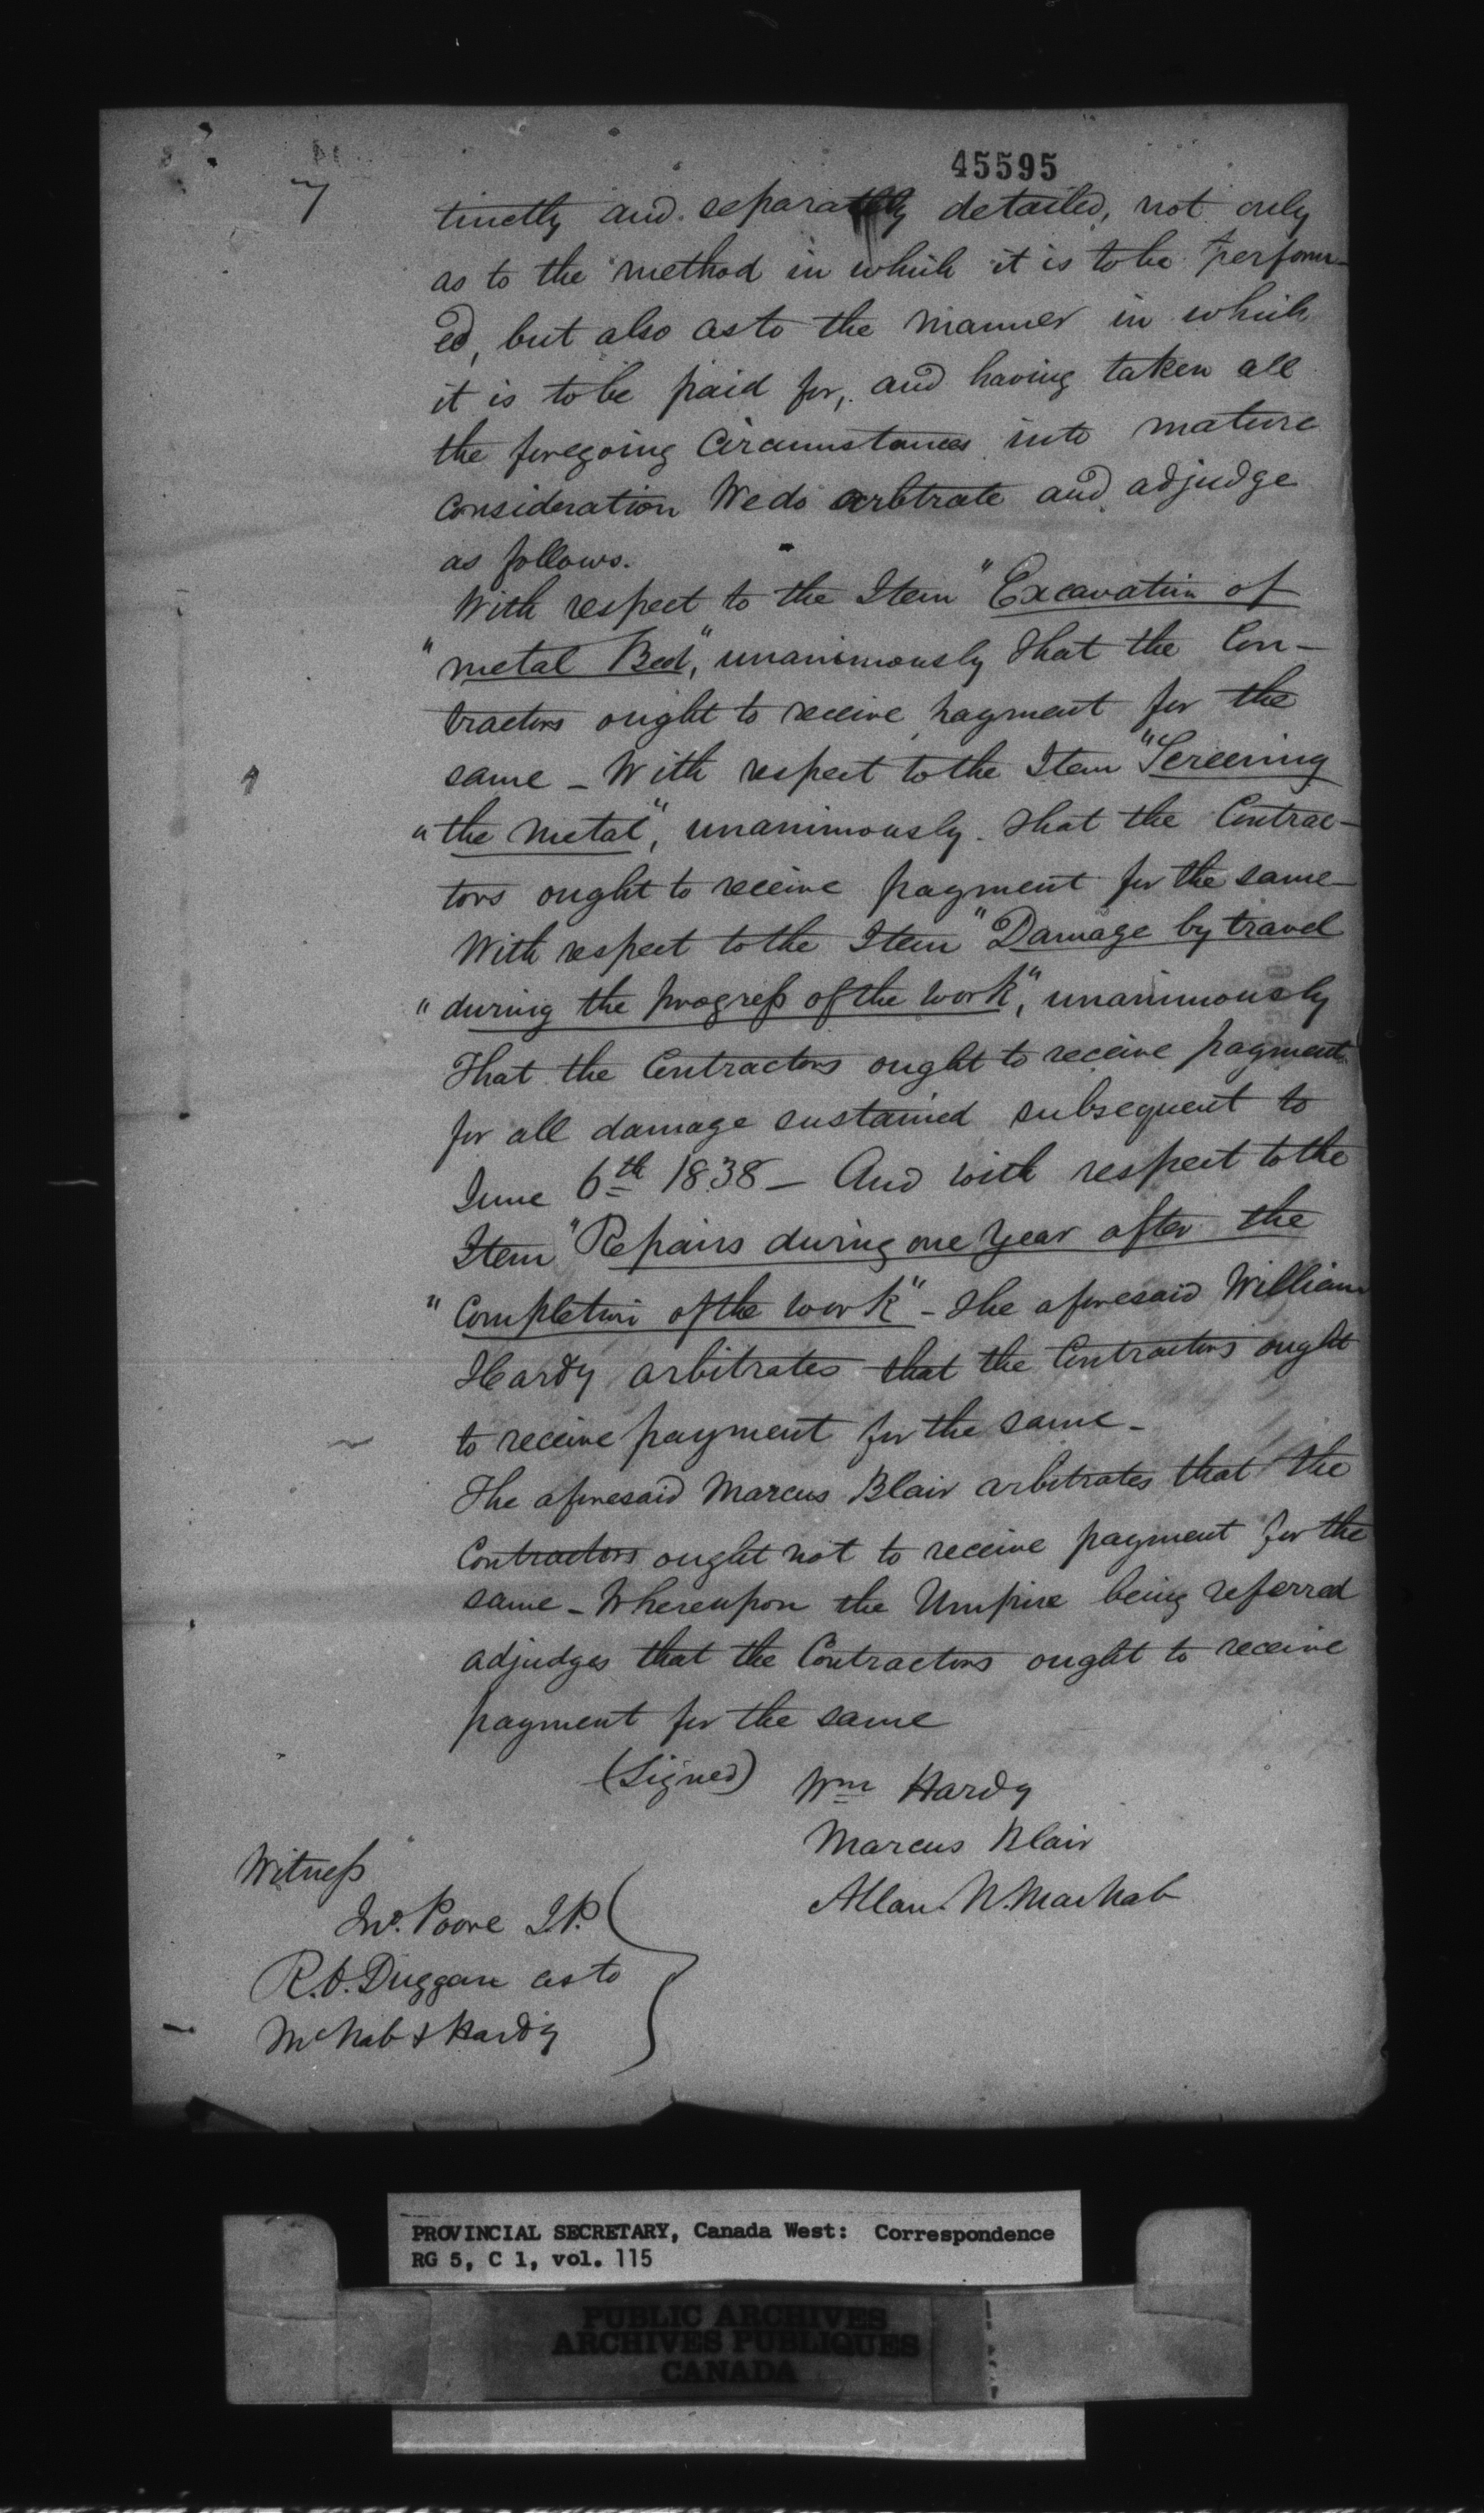 45595
7
tinctly and separately detailed, not only
as to the method in which it is to be perform-
ed, but also as to the manner in which
it is to be paid for, and having taken all
the foregoing Circumstances into mature
Consideration We do arbtrate and adjudge
as follows.
With respect to the Item "Excavation of
"metal Bed", unanimously That the Con-
tractors ought to receive payment for the
same - With respect to the Item "Screening
"the metal", unanimously. That the Contrac-
tors ought to receive payment for the same -
With respect to the Item "Damage by travel
"during the progress of the work", unanimously
That the Contractors ought to receive payment
for all damage sustained subsequent to
June 6th 1838 - And with respect to the
Item "Repairs during one Year after the
"Completion of the work" - The aforesaid William
Hardy arbitrates that the Contractors ought
to receive payment for the same -
The aforesaid Marcus Blair arbitrates that the
Contractors ought not to receive payment for the
same - Whereupon the Umpire being referred
adjudges that the Contractors ought to receive
payment for the same
(Signed) Wm Hardy
Marcus Blair
Allan. N. MacNab
Witness
Jno. Poore J.P.
R. O. Duggan as to
McNab & Hardy
PROVINCIAL SECRETARY, Canada West: Correspondence
RG 5, C 1, vol. 115
PUBLIC ARCHIVES
ARCHIVES PUBLIQUES
CANADA